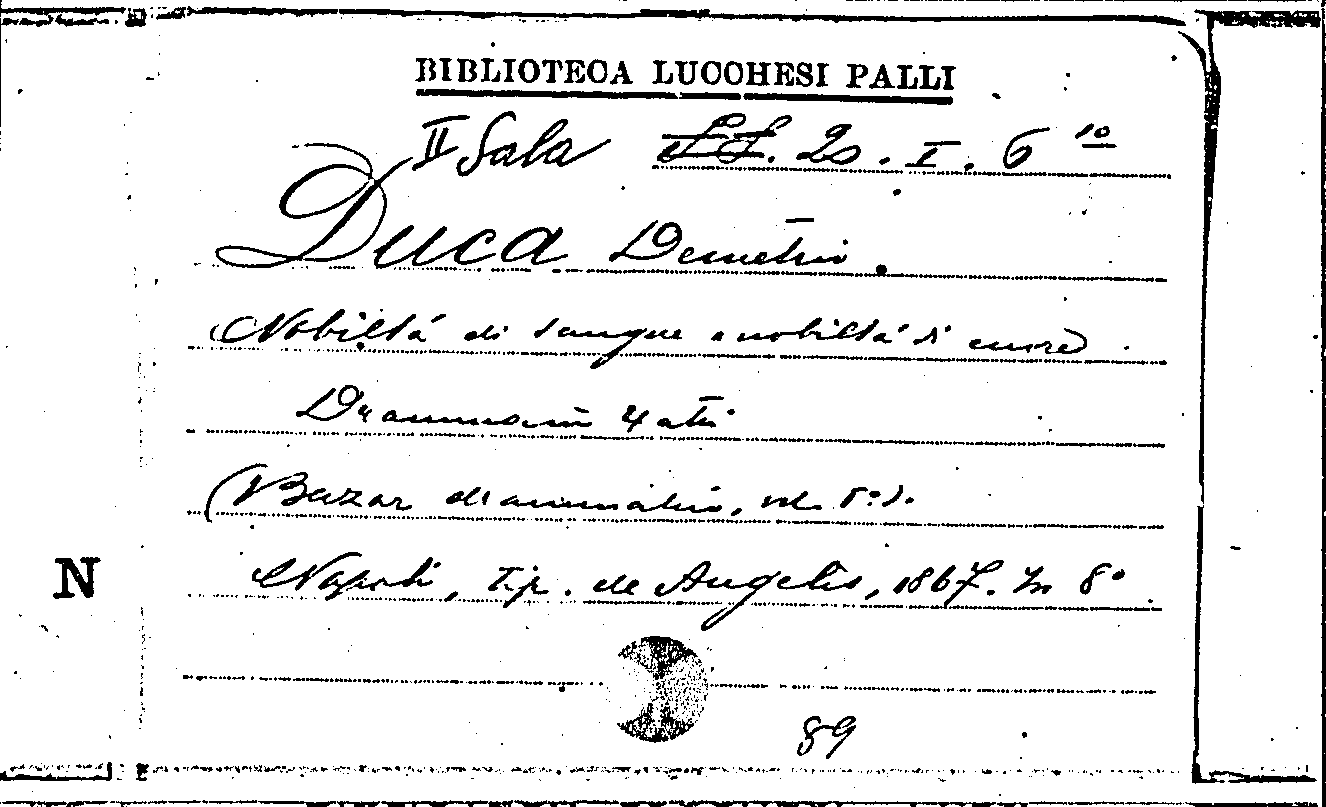 BIBLIOTECA LUCCHESI PALLI
II Sala 20. I. 6 10
Duca Demetrio.
Nobiltá di sangue e nobiltá di cuore.
Dramma in 4 atti
(Bazar drammatico, vol.
Napoli, tip. de Angelis, 1867. In 8°.
N
89